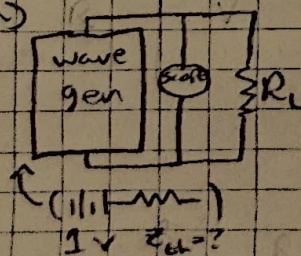 wave
gen
scope
RL
1 v Zth=?